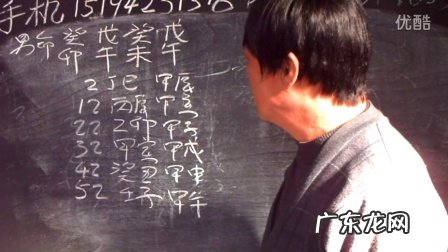 优酷
手机
男命 癸 戊 癸 戊
卯 午 未 午
2 丁巳 甲辰
12 丙辰 甲寅
22 乙卯 甲子
32 甲寅 甲戌
42 癸丑 甲申
52 壬子 甲午
广东龙网